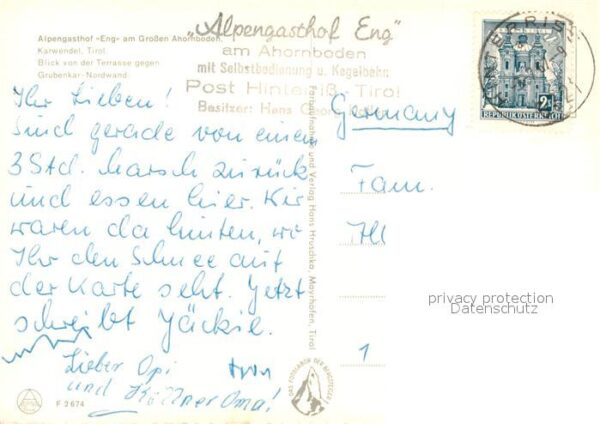 Alpengasthof «Eng» am Großen Ahornboden,
Karwendel, Tirol.
Blick von der Terrasse gegen
Grubenkar-Nordwand
"Alpengasthof Eng"
am Ahornboden
mit Selbstbedienung u. Kegelbahn
Post Hinterriß - Tirol
Besitzer: Hans
HINTERRISS
REPUBLIK ÖSTERREICH
Ihr Lieben!
Sind gerade von einem
3 Std. marsch zurück
und essen hier. Wir
waren da hinten, wo
Ihr den Schnee auf
der Karte seht. Jetzt
schreibt Jäckie.
Lieber Opi
und Köllner Oma!
Germany
Fam.
Farbaufnahme und Verlag Hans Hruschka, Mayrhofen, Tirol
privacy protection
Datenschutz
1
F 2674